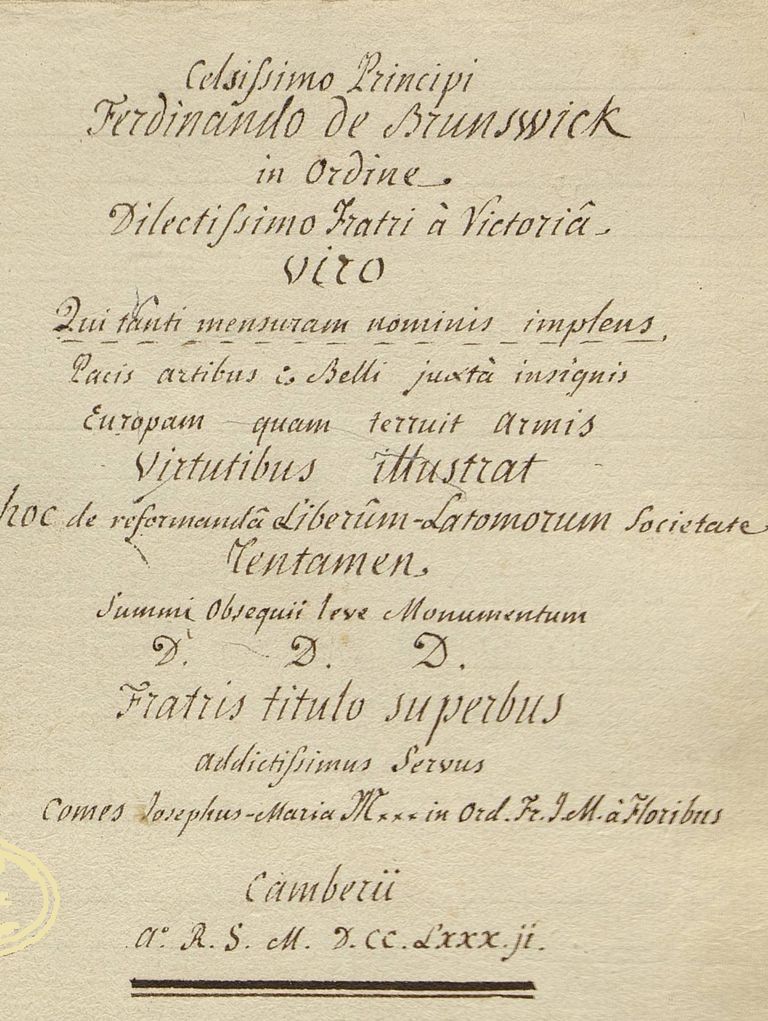 Celsissimo Principi
Ferdinando de Brunswick
in Ordine
Dilectissimo Fratri à Victoriâ
Viro
Qui tanti mensuram nominis implens,
Pacis artibus & Belli juxtà insignis
Europam quam terruit Armis
Virtutibus illustrat
hoc de reformandâ Liberûm-Latomorum Societate
Tentamen,
Summi Obsequii leve Monumentum
D. D. D.
Fratris titulo superbus
addictissimus Servus
Comes Josephus-Maria M... in Ord. Fr. J. M. à Floribus
Camberii
a° R. S. M. D. CC. Lxxx. ji.